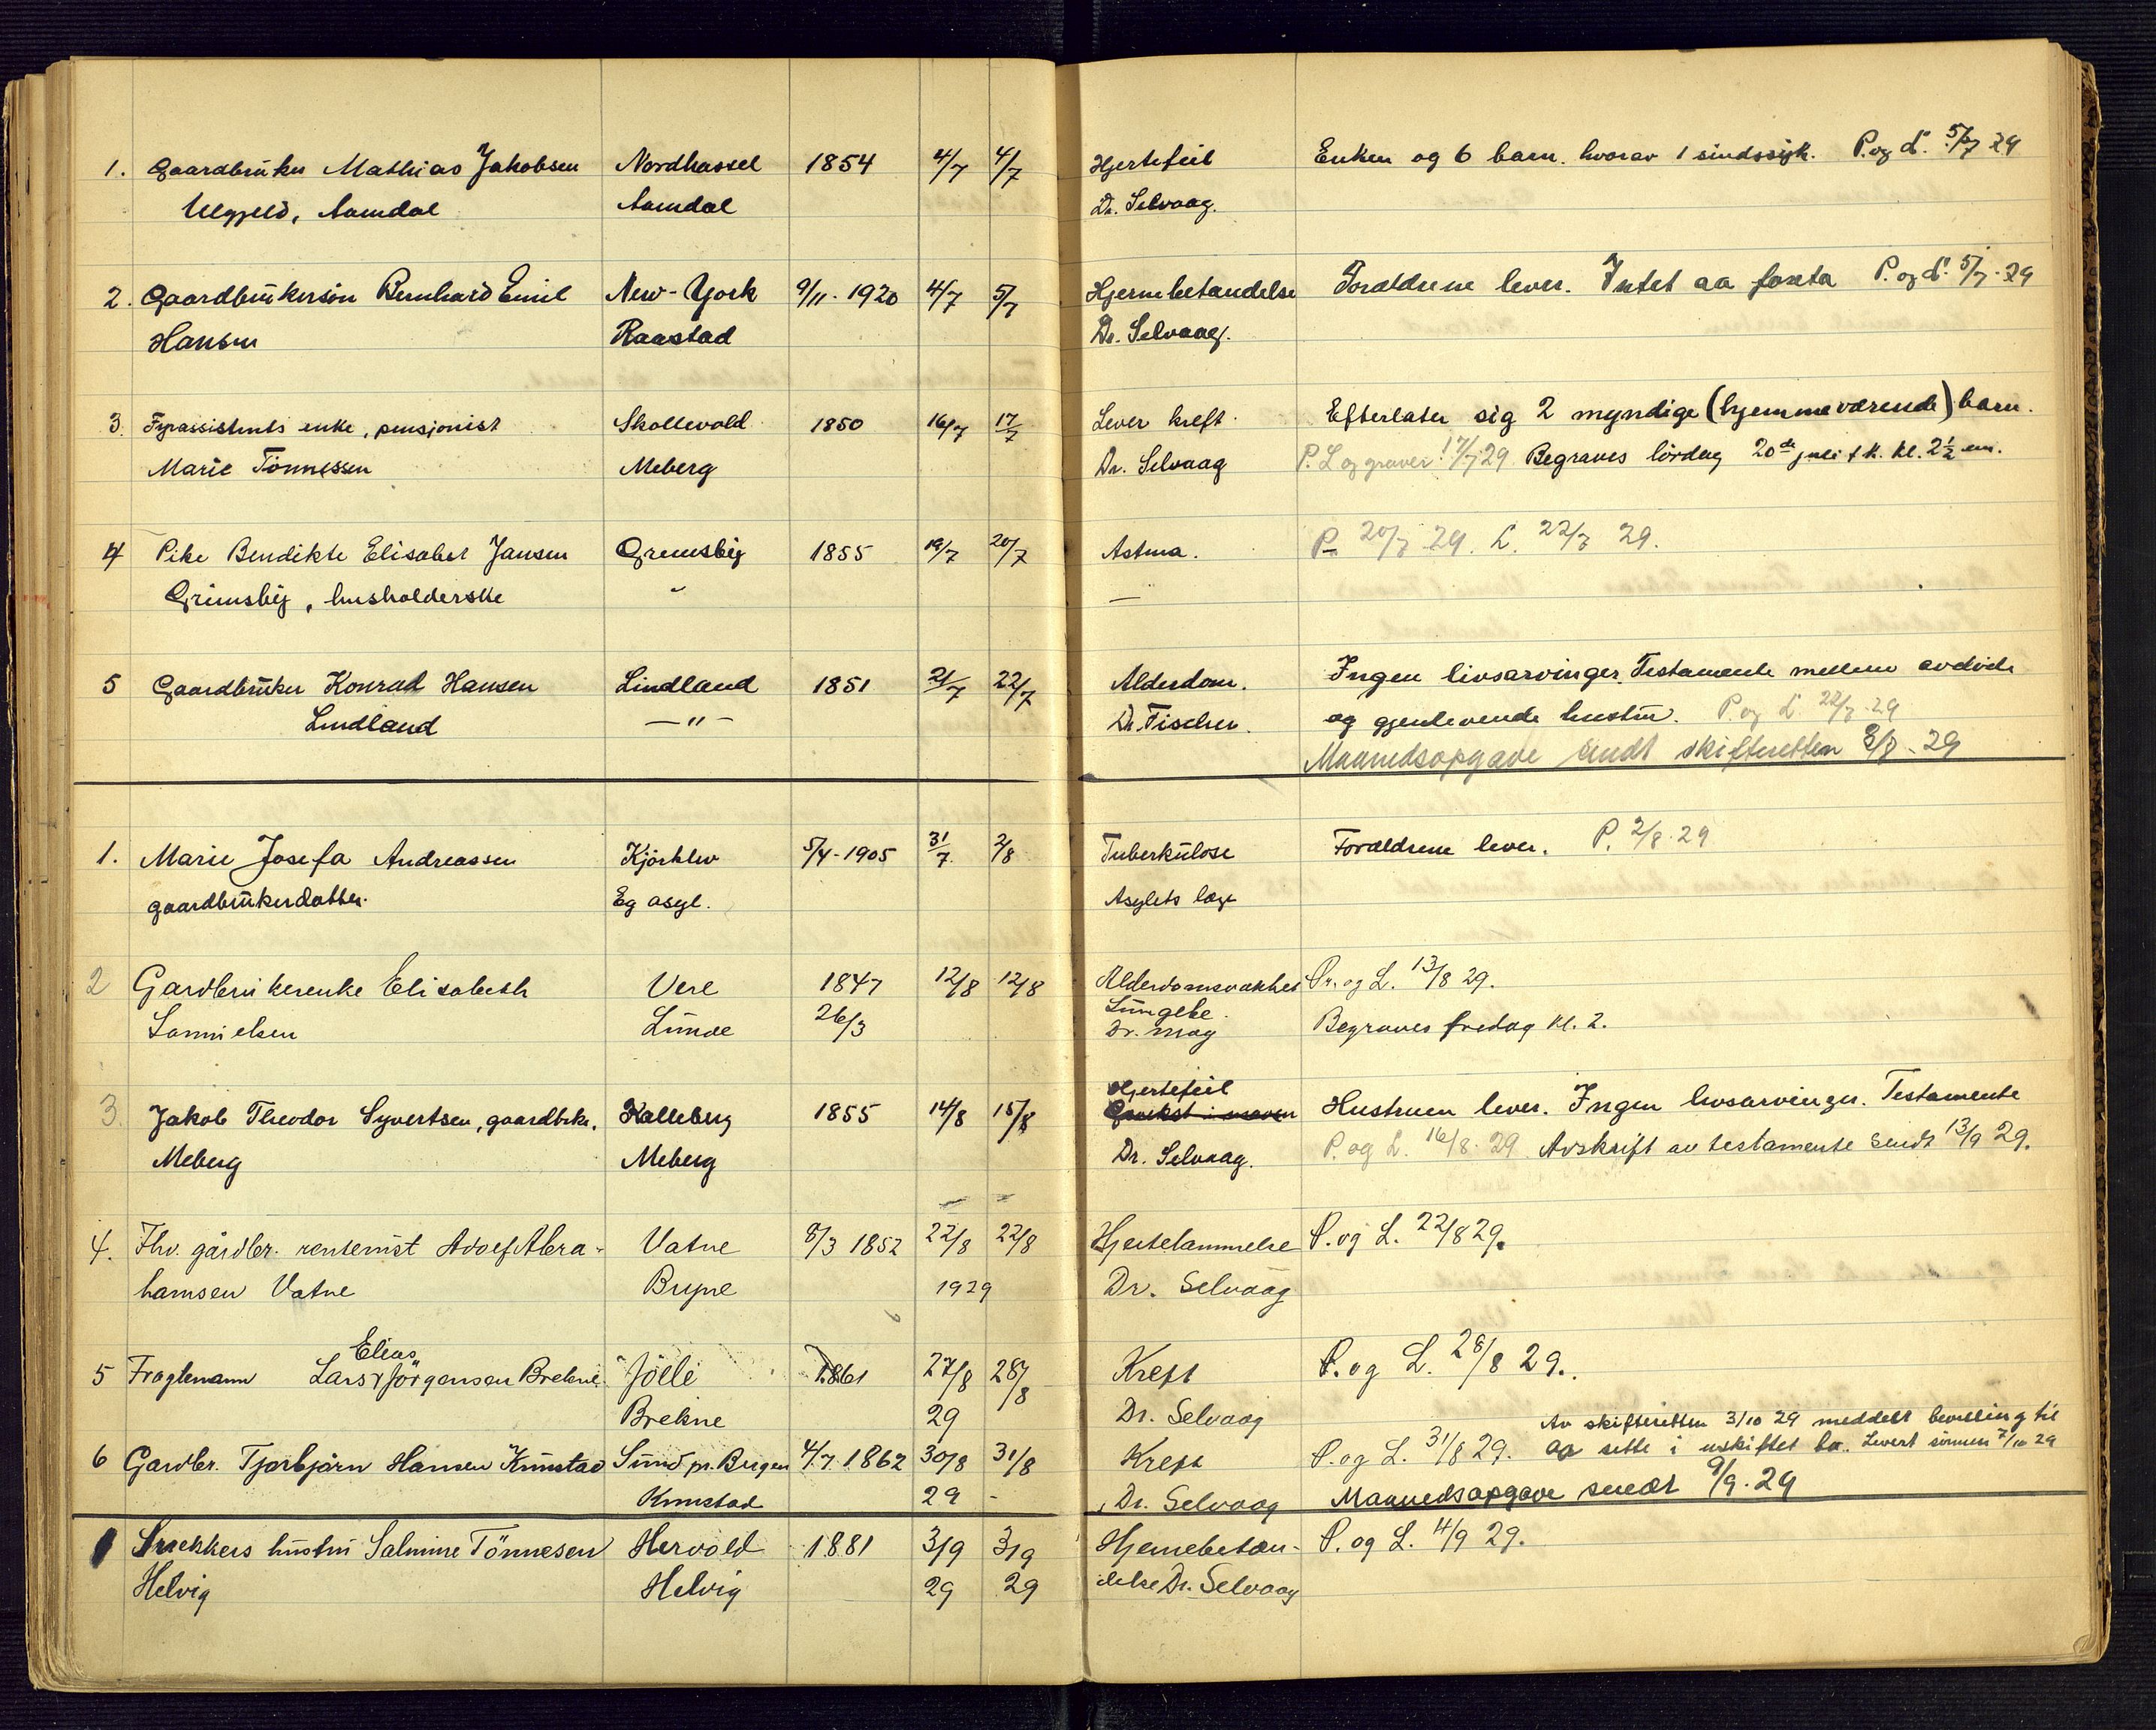 1. Gaardbruker Mathias Jakobsen Nordhassel 1854 4/7 4/7 Hjertefeil Enken og 6 barn. hvorav 1 sindssyk. P. og L. 5/7 29
Ulgjeld, Aamdal Aamdal Dr. Selvaag.
2. Gaardbrukersön Bernhard Emil New-York 9/11-1920 4/7 5/7 Hjernebetændelse Forældrene lever. Intet aa foreta P. og L. 5/7-29
Hansen Raastad Dr. Selvaag.
3. Fyrassistents enke, pensjonist Skollevold 1850 16/7 17/7 Lever kreft. Efterlater sig 2 myndige (hjemmeværende) barn.
Marie Tönnessen Meberg Dr. Selvaag P. L og graver 17/7 29 Begraves lördag 20de juli f.k. kl. 2½ em.
4 Pike Bendikte Elisabet Jansen Grimsby 1855 19/7 20/7 Astma. P. 20/7 29. L. 22/7 29.
Grimsby, husholderske " —
5 Gaardbruker Konrad Hansen Lindland 1851 21/7 22/7 Alderdom. Ingen livsarvinger. Testamente mellem avdöde
Lindland —"— Dr. Fischer. og gjenlevende hustru. P. og L. 22/7-29
Maanedsopgave sendt skifteretten 8/8-29
1. Marie Josefa Andreassen 5/4-1905 31/7 2/8 Tuberkulose Forældrene lever. P. 2/8-29
gaardbrukerdatter. Eg asyl. Asylets læge
2 Gardbrukerenke Elisabeth Vere 1847 12/8 12/8 Alderdomssvakhet Pr. og L. 13/8 29.
Samuelsen Lunde 26/3 Lungebe.
Dr. Mag Begraves fredag kl. 2.
3. Jakob Theodor Syvertsen, gaardbrk. Kalleberg 1855 14/8 15/8 Hjertefeil Hustruen lever. Ingen livsarvinger. Testamente
Meberg Meberg Dr. Selvaag. P. og L. 16/8-29 Avskrift av testamente sendt 13/9 29.
4. Fhv. gårdbr. rentenist Adolf Abra- Vatne 8/3 1852 22/8 22/8 Hjertelammelse P. og L. 22/8 29.
hamsen Vatne Bryne 1929 Dr. Selvaag
Elias
5 Fragtemann Lars Jörgensen Brekne Jölle 1861 27/8 28/8 Kreft P. og L. 28/8 29.
Brekne 29 Dr. Selvaag Av skifteretten 3/10 29 meddelt bevilling til
6 Gardbr. Tjorbjörn Hansen Kumstad Sund pr. Bergen 4/7 1862 30/8 31/8 Kreft P. og L. 31/8 29. aa sitte i uskiftet bo. Levert sönnen 7/10 29
Kumstad 29 - Dr. Selvaag Maanedsopgave sendt 9/9-29
1 Snekkers hustru Salmine Tönnesen Hervold 1881 3/9 3/9 Hjernebetæn- P. og L. 4/9 29.
Helvig Helvig 29 29 delse Dr. Selvaag